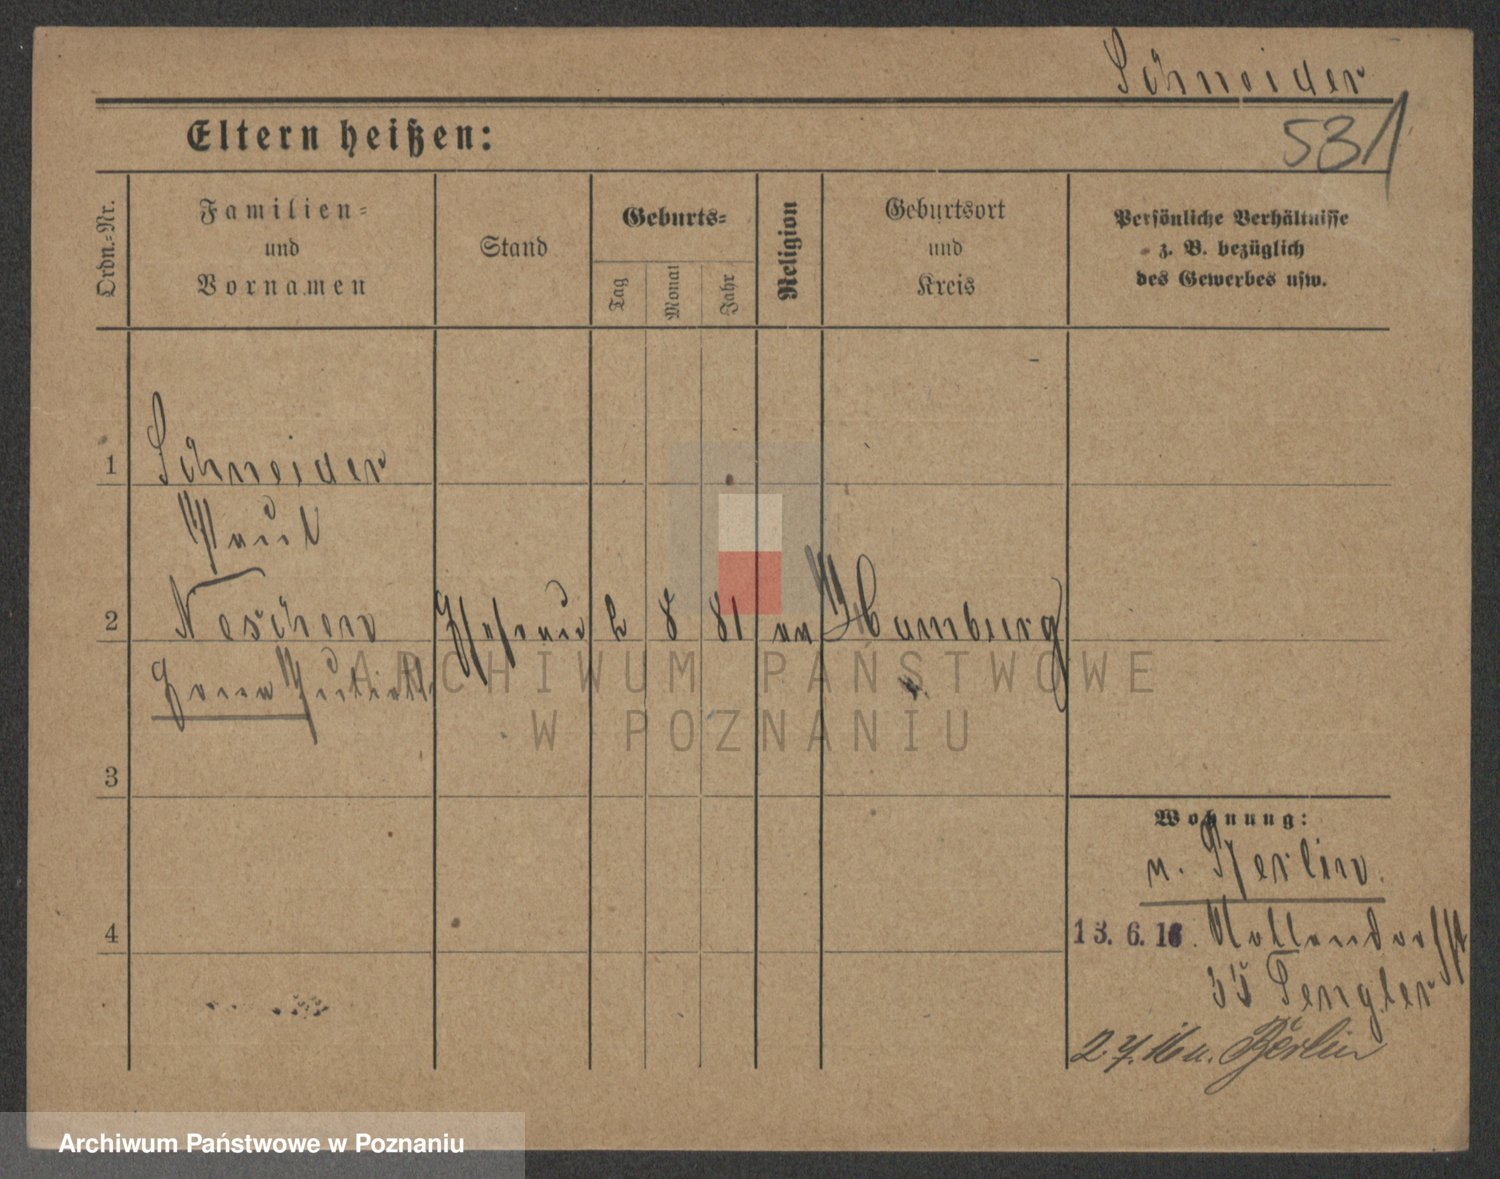 Schneider
Eltern heißen:
531
Ordn.=Nr.
Familien=
und
Vornamen
Stand
Geburts=
Tag
Monat
Jahr
Religion
Geburtsort
und
Kreis
Persönliche Verhältnisse
z. B. bezüglich
des Gewerbes usw.
1
Schneider
Paul
2
8 81
Hamburg
ARCHIWUM PAŃSTWOWE
W POZNANIU
3
Wohnung:
n. Berlin.
4
13. 6. 16. Nollendorfst
35 Tengler
2.7.16 n. Berlin
Archiwum Państwowe w Poznaniu